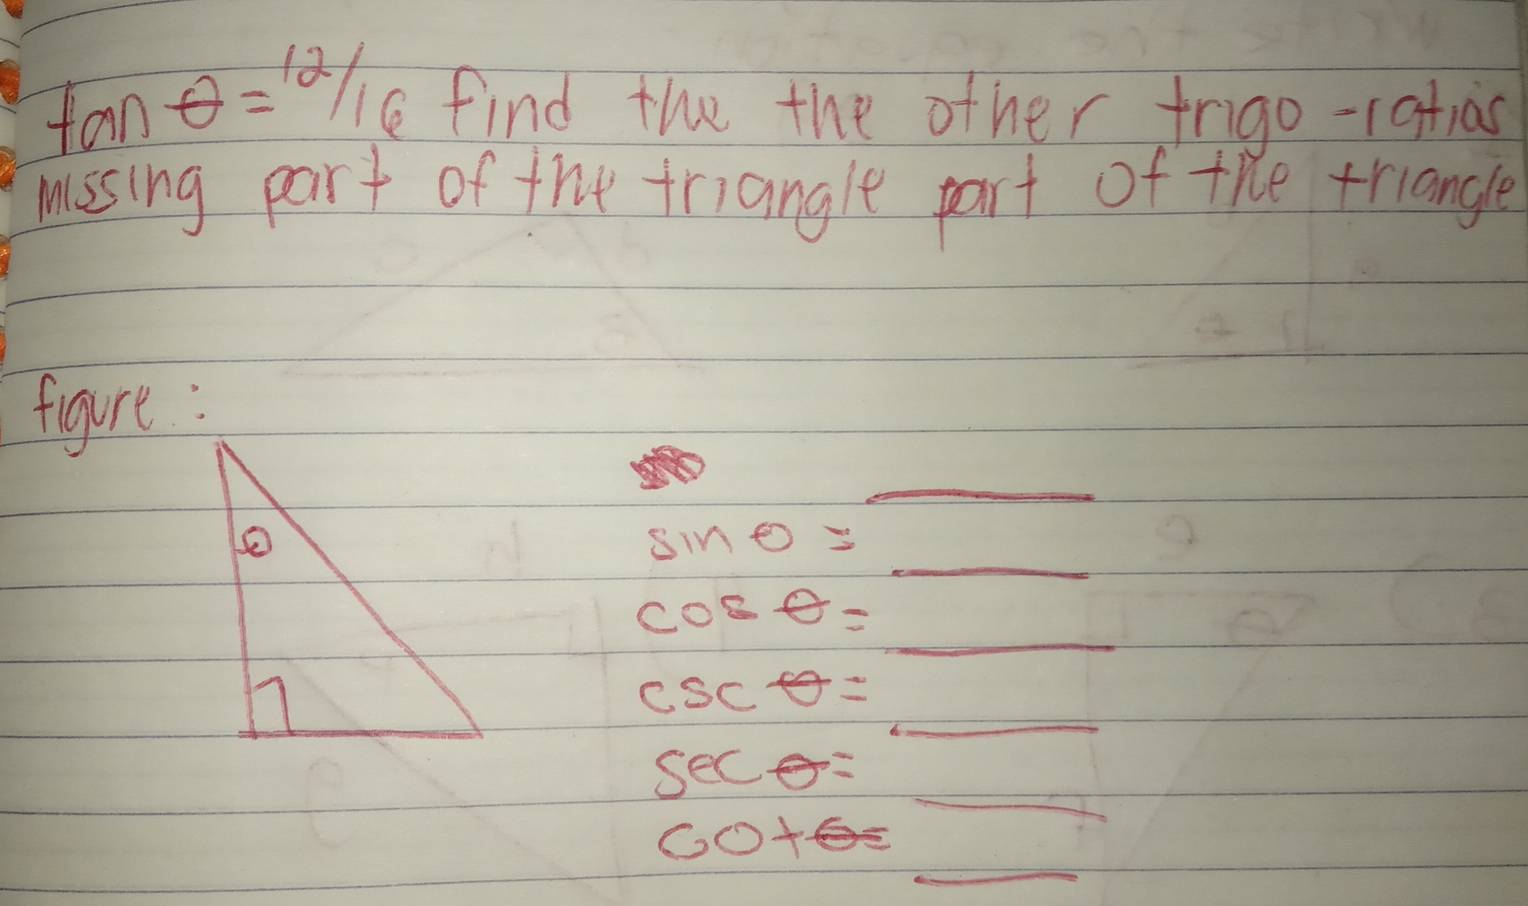 tan θ = 12/16 find the the other trigo-ratios
missing part of the triangle part of the triangle
figure :
θ
sin θ =
cos θ =
csc θ =
sec θ =
cot θ =